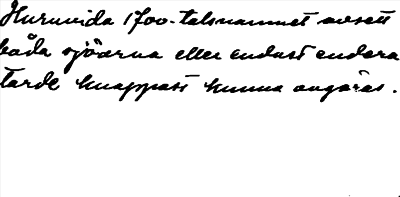 Huruvida 1700-talsnamnet avsett
båda sjöarna eller endast endera
torde knappast kunna avgöras.